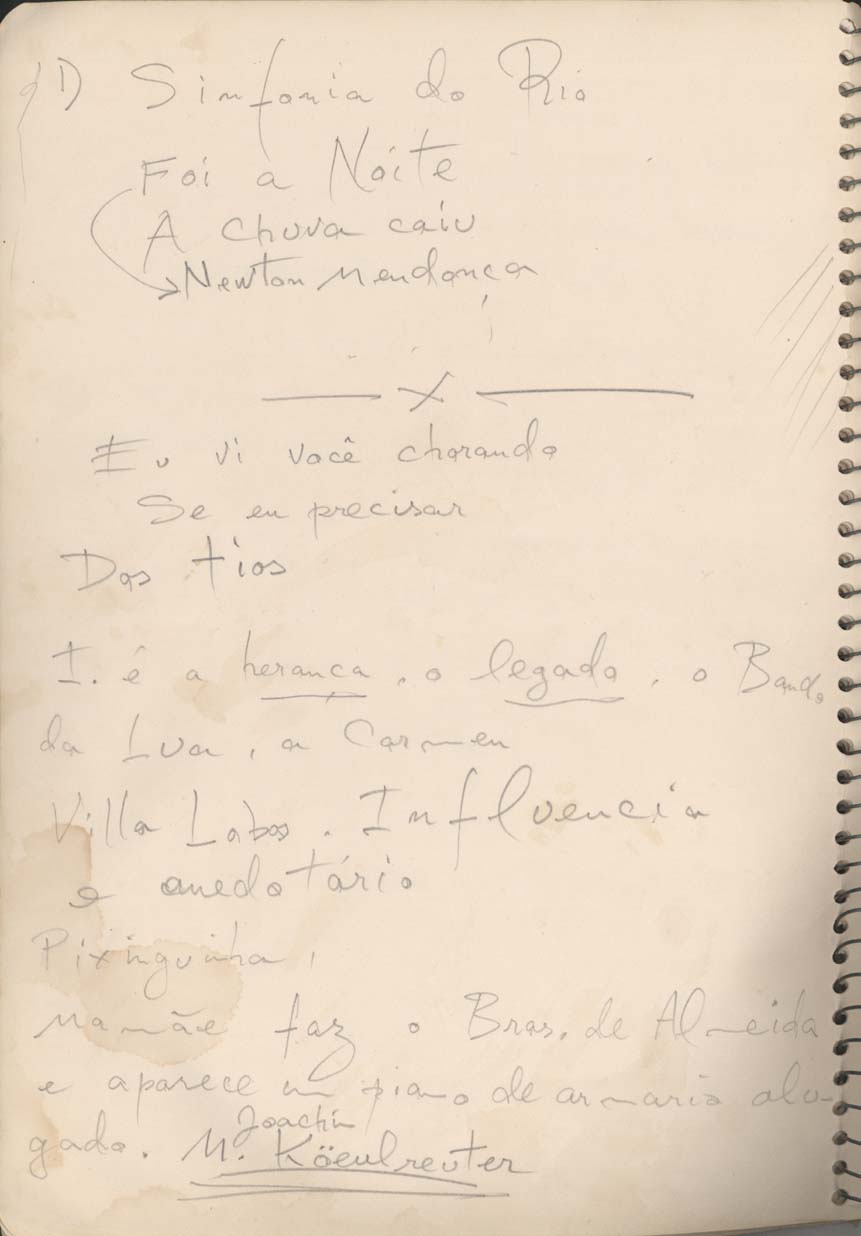 1) Sinfonia do Rio
Foi a Noite
A chuva caiu
Newton Mendonça
X
Eu vi você chorando
Se eu precisar
Dos tios
I. é a herança, o legado, o Bando
da Lua, a Carmen
Villa Lobos. Influencia
e anedotário
Pixinguinha,
Mamãe faz o Bras. de Almeida
e aparece um piano de armario alu-
gado. M. Joachin Köeulreuter